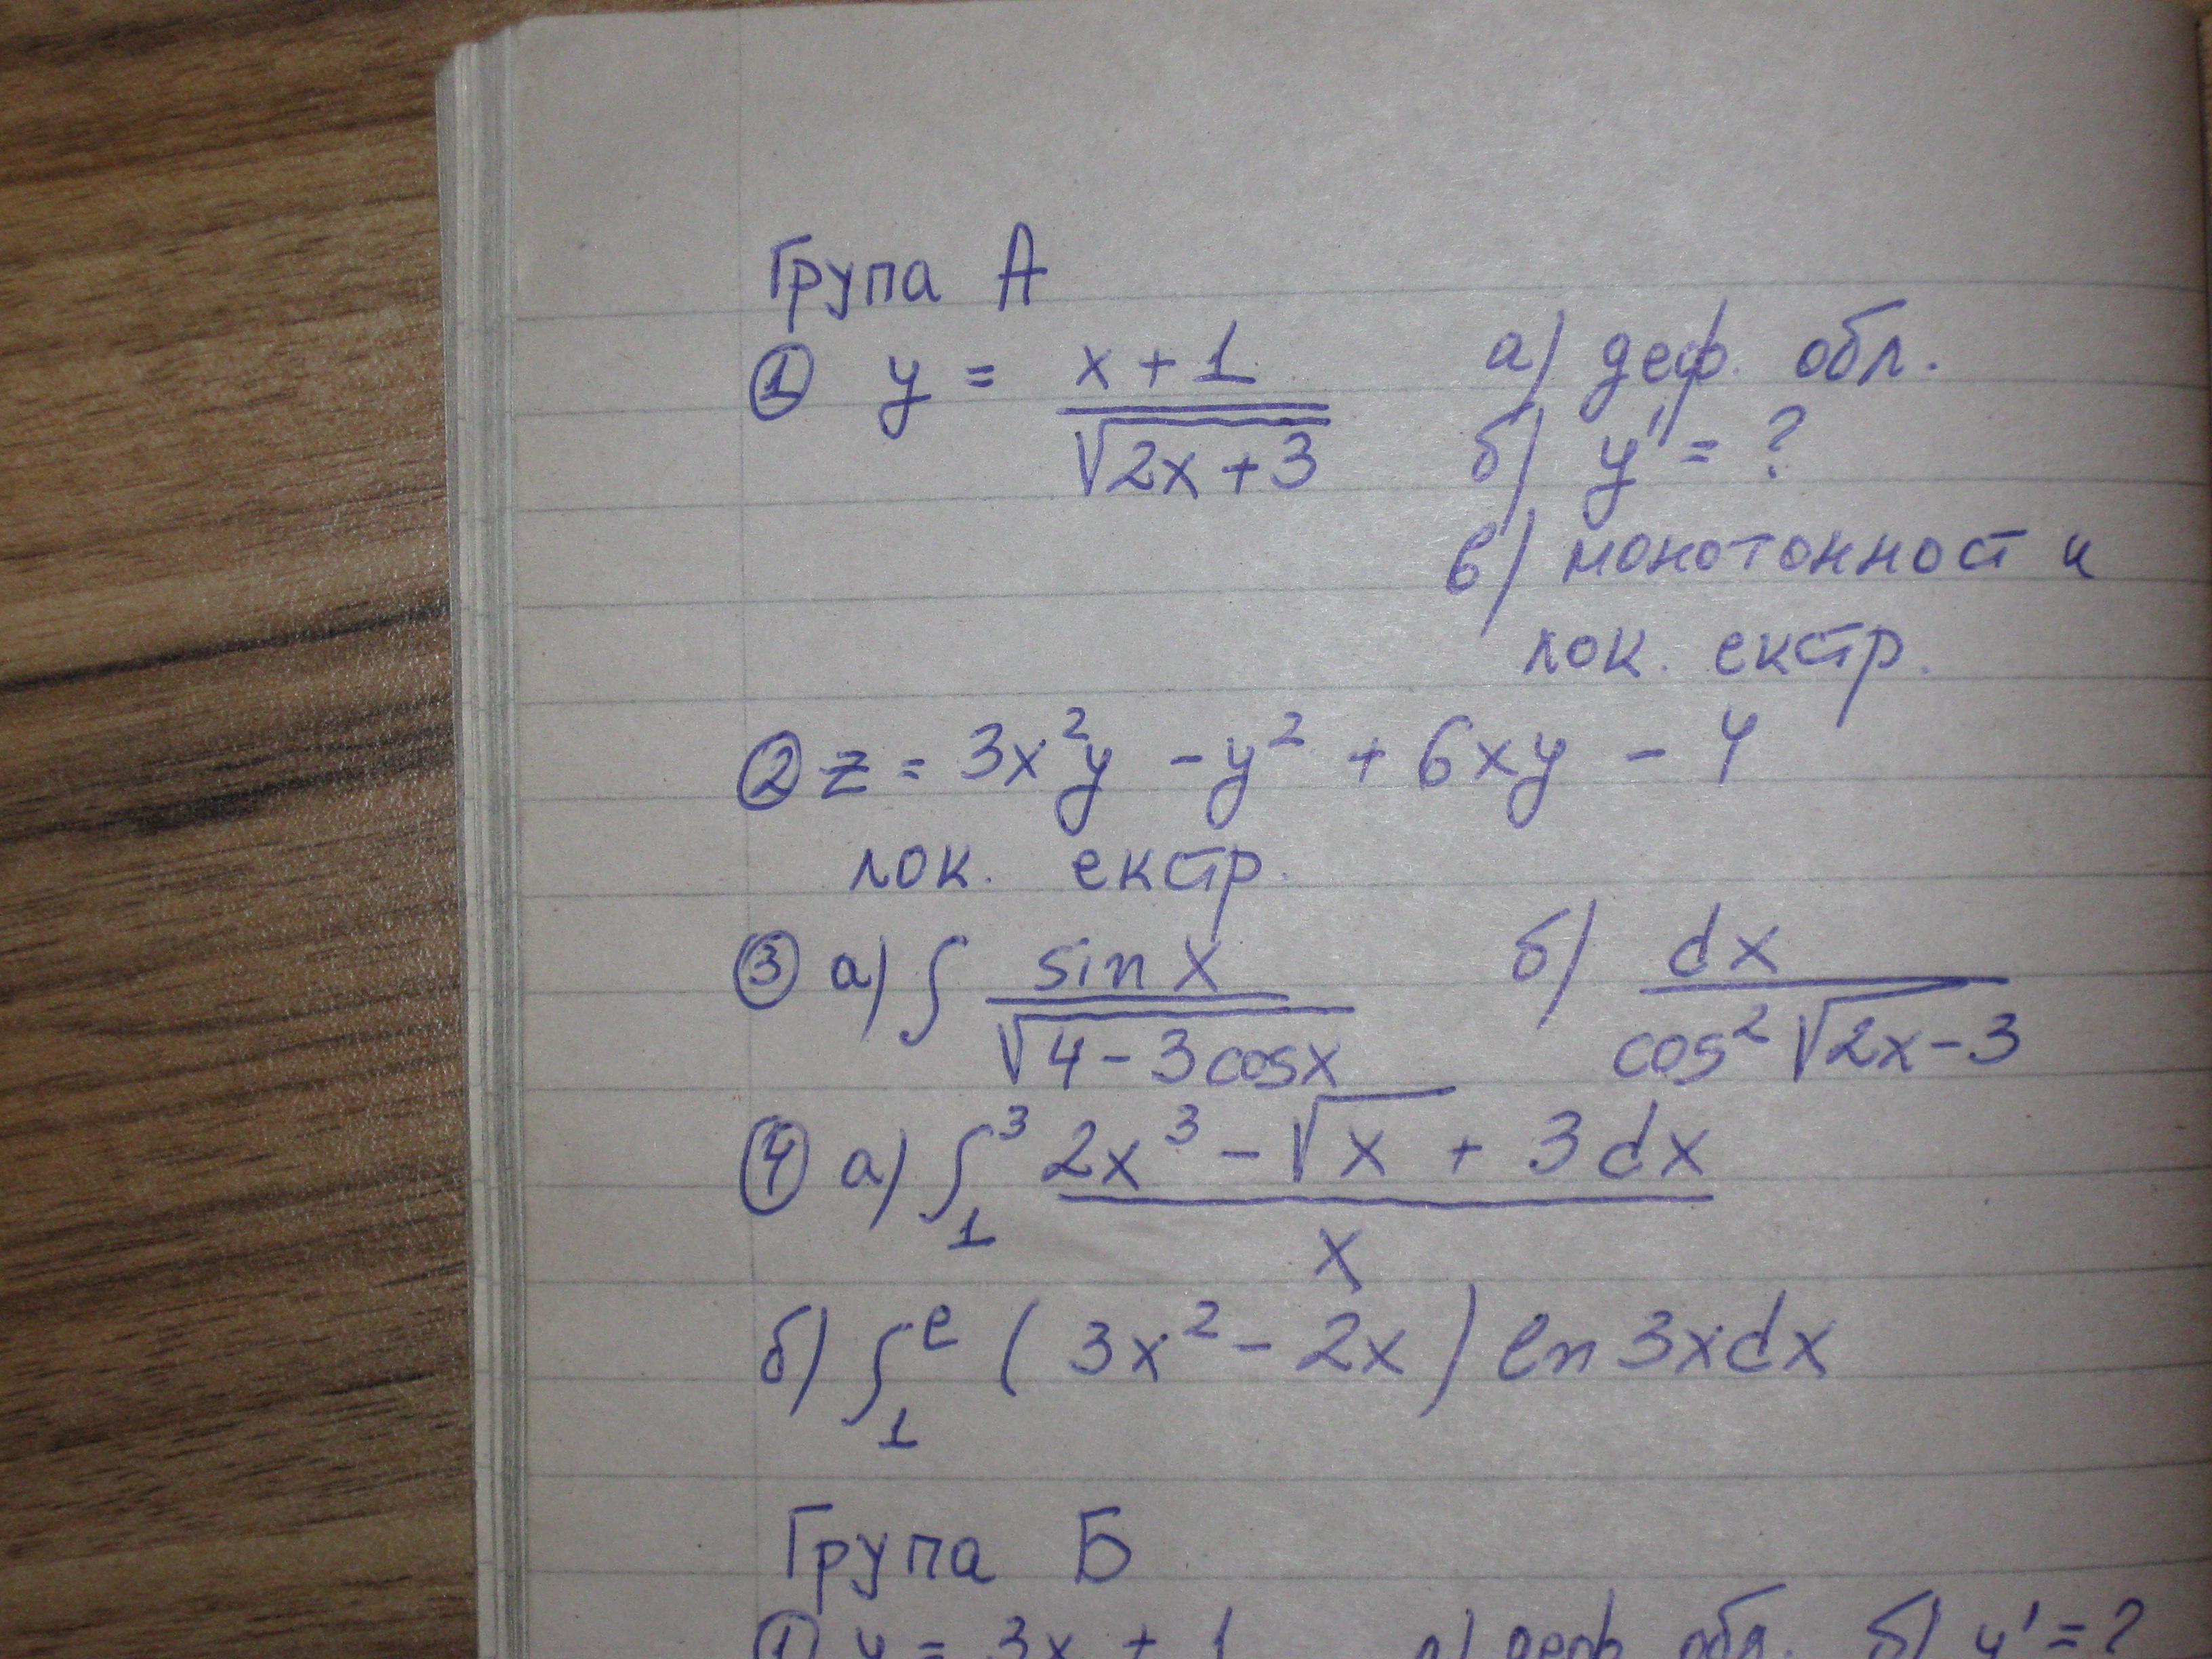 Група А
① y = (x+1)/√(2x+3) а) деф. обл.
б) y' = ?
в) монотонност и
лок. екстр.
② z = 3x²y - y² + 6xy - 4
лок. екстр.
③ а) ∫ sin x/√(4-3cosx) б) dx/cos² √2x-3
④ а) ∫₁³ (2x³ - √x + 3dx)/x
б) ∫₁ᵉ (3x² - 2x) ln 3xdx
Група Б
① y = 3x + 1 а) деф. обл. б) y' = ?